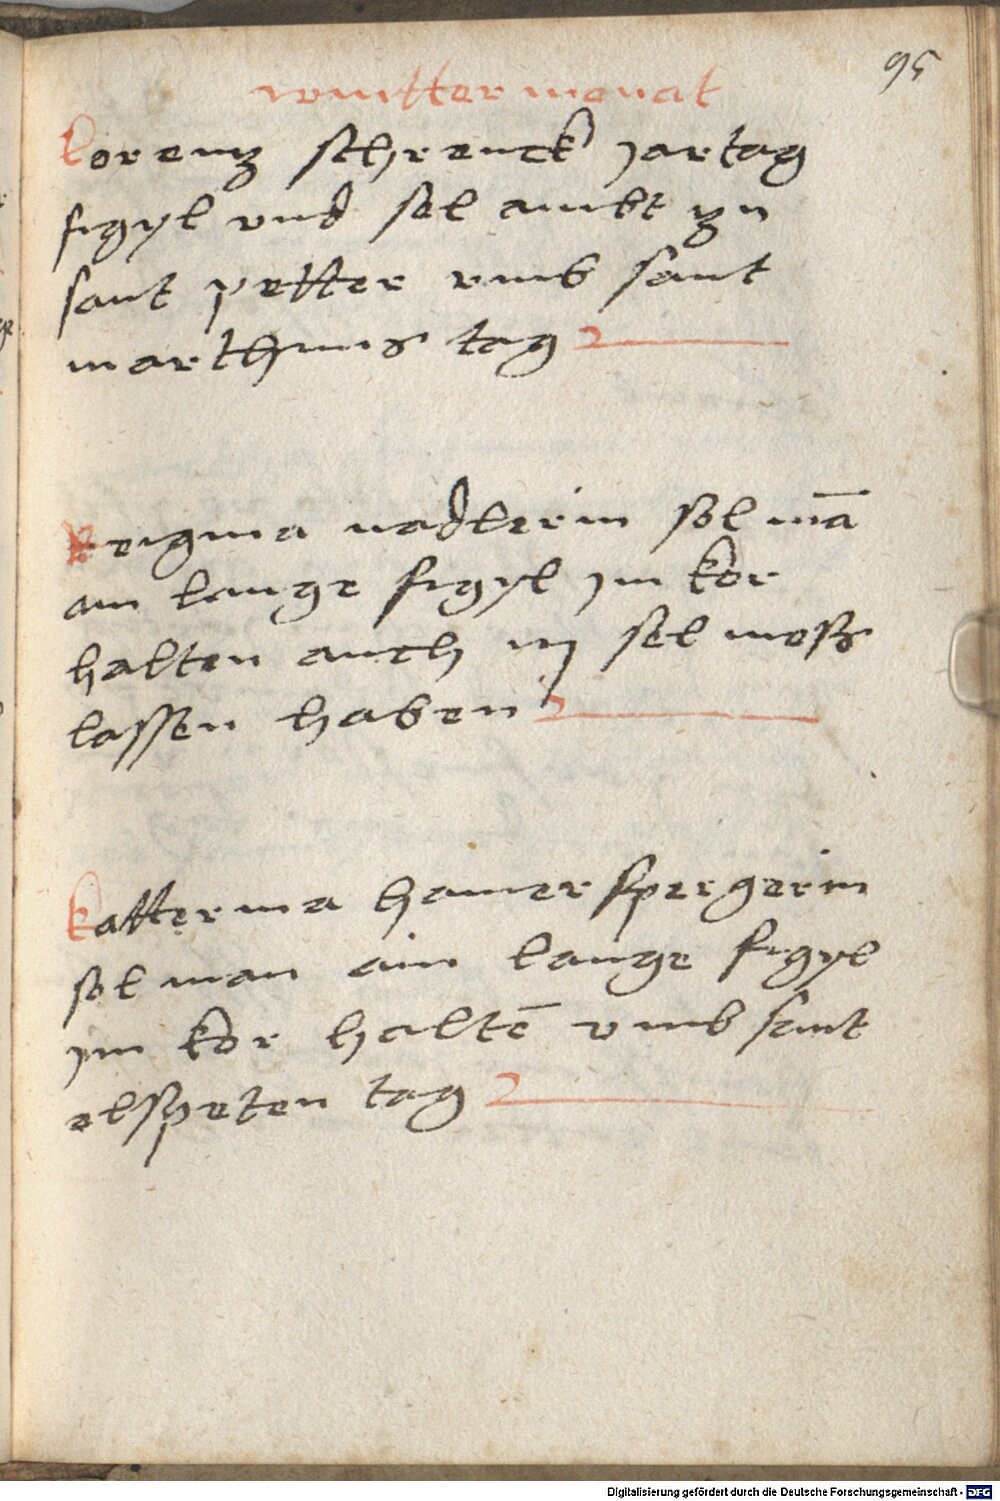 95
wintter monat
lorentz schrenck jartag
figyl vnd sel ambt zu
sant petter vmb sant
marthins tag
Reigina nadlerin sol mā
ain lange figyl jm kor
halten auch iij sel mess
lassen haben
katterina hamerspergerin
sol man ain lange figyl
jm kor haltē vmb sant
elspeten tag
Digitalisierung gefördert durch die Deutsche Forschungsgemeinschaft - DFG